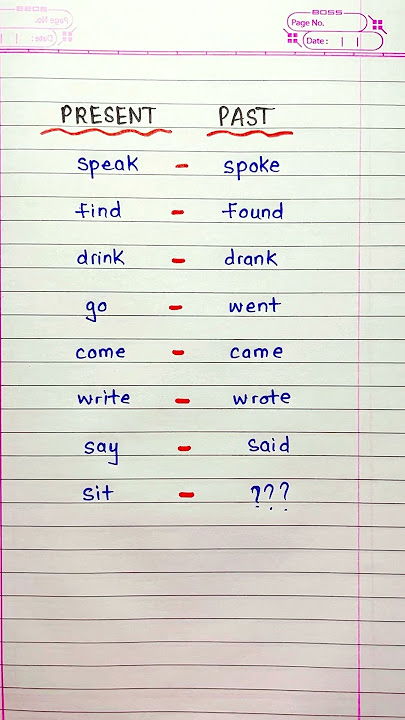 BOSS
Page No.
Date: | |
PRESENT PAST
speak - spoke
find - found
drink - drank
go - went
come - came
write - wrote
say - said
sit - ???